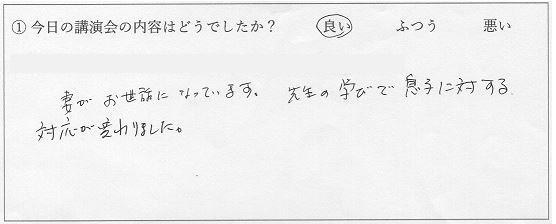 ① 今日の講演会の内容はどうでしたか？ 良い ふつう 悪い
妻がお世話になっています。 先生の学びで息子に対する
対応が変わりました。